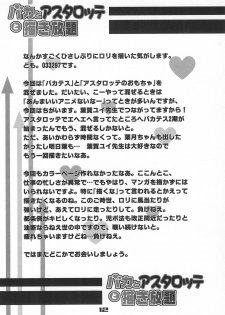 バカテとアスタロッテ
と描き放題
なんかすごくひさしぶりにロリを描いた気がします。
ども。033267です。
今回は「バカテス」と「アスタロッテのおもちゃ」を
混ぜてみました。だいたい、こーやって混ぜるときは
「あんまいいアニメないなー」ってときが多いんですが、
今回はさにあらず。葉賀ユイ先生でつながってますから！
アスタロッテでエヘエヘ言ってたところにバカテス2期が
始まったんでもう、混ぜるしかないと。
ただ、あいかわらず時間なくって。葉月ちゃんも出した
かったし明日葉も… ユイ先生は大好きなので
もう一回描きたいなあと。
今回もカラーページ作れなかったなあ。ここんとこ、
仕事の忙しさが異常で…でもやはり、マンガを描かずには
いられないんですよね。特に「描くな」って言われると
描きたくなるのね。このロリ冬の時代に、ロリに風当たりが
強いけど、あえてロリに走りたいし。負けねえ。
都条例がキビしくなったり、児ポ法も改正間近だったりと
油断ならねえ世の中ですので、戦い続けないと。
疲れちゃいますけどね…負けねえ。
ではまたどこかでお会いしましょう。
バカテとアスタロッテ
と描き放題